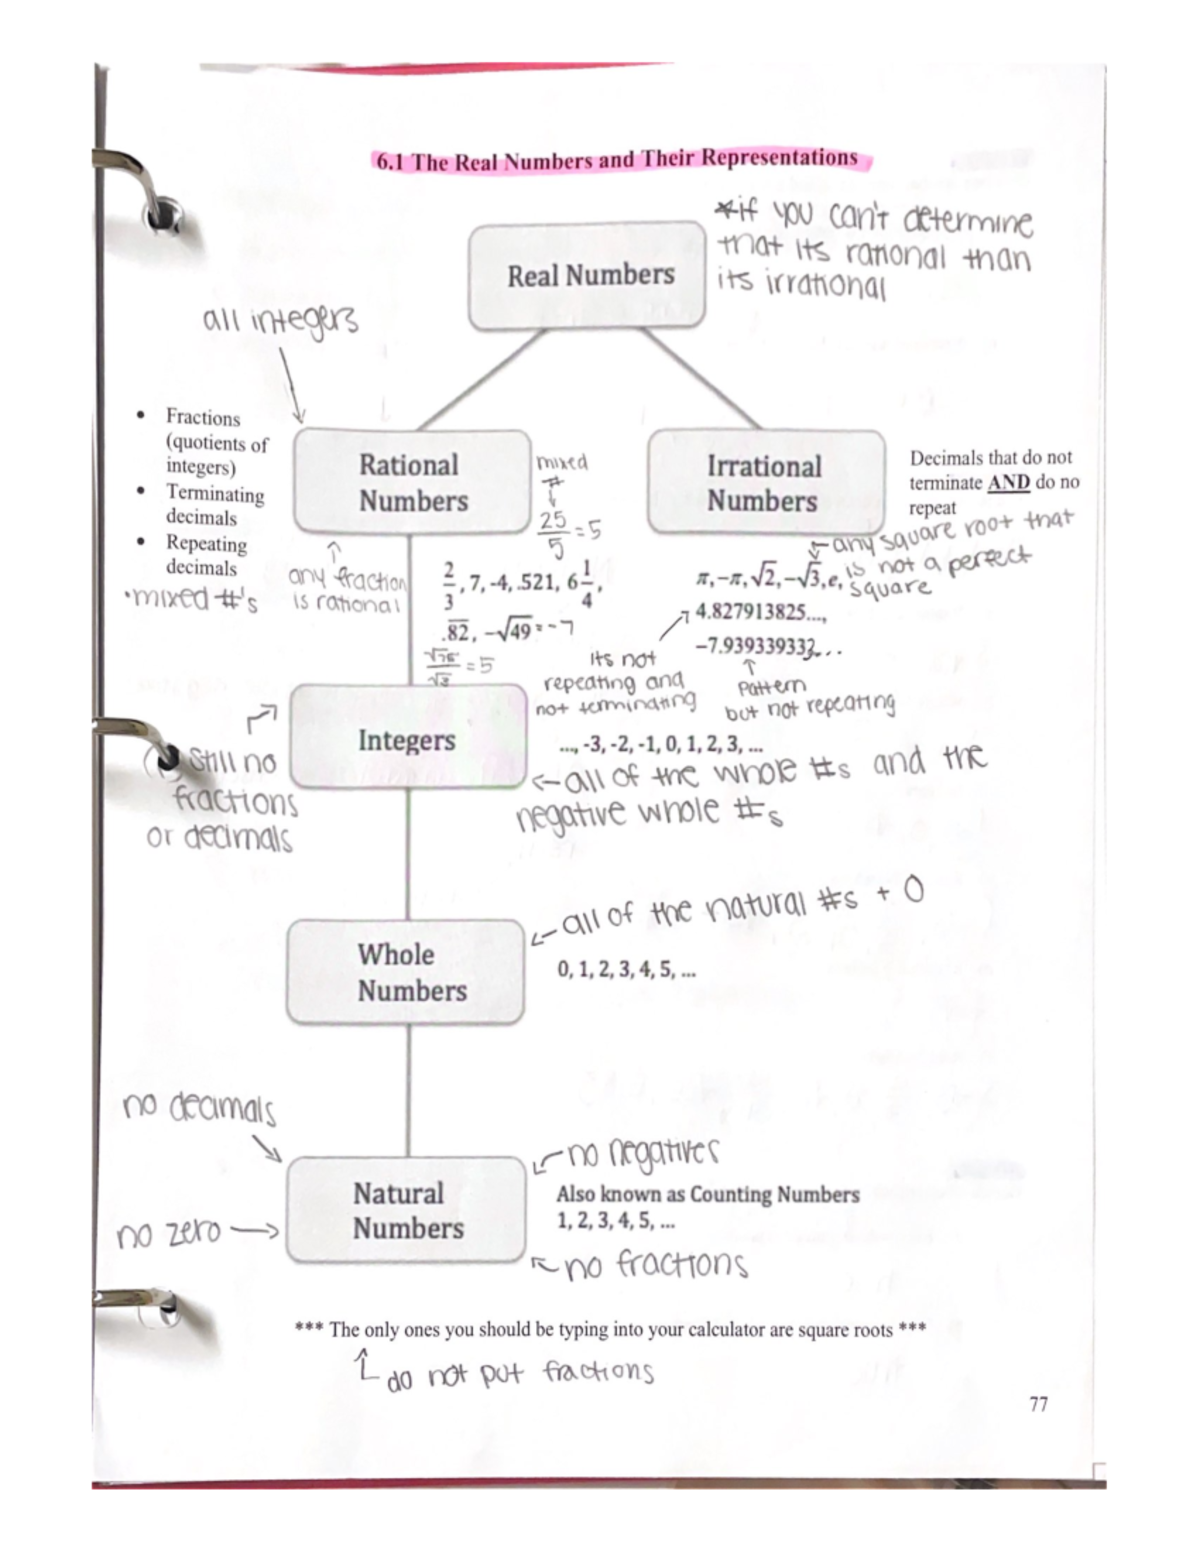 6.1 The Real Numbers and Their Representations
*if you can't determine
that its rational than
its irrational
Real Numbers
all integers
• Fractions
(quotients of
integers)
• Terminating
decimals
• Repeating
decimals
•mixed #'s
Rational
Numbers
mixed
#
25/5 = 5
any fraction
is rational
2/3, 7, -4, .521, 6 1/4,
.8̅2̅, -√49 = -7
= 5
Irrational
Numbers
Decimals that do not
terminate AND do no
repeat
any square root that
is not a perfect
square
π, -π, √2, -√3, e,
4.827913825...,
-7.939339333...
its not
repeating and
not terminating
pattern
but not repeating
Integers
Still no
fractions
or decimals
..., -3, -2, -1, 0, 1, 2, 3, ...
all of the whole #s and the
negative whole #s
Whole
Numbers
all of the natural #s + 0
0, 1, 2, 3, 4, 5, ...
no decimals
no zero
Natural
Numbers
no negatives
Also known as Counting Numbers
1, 2, 3, 4, 5, ...
no fractions
*** The only ones you should be typing into your calculator are square roots ***
do not put fractions
77